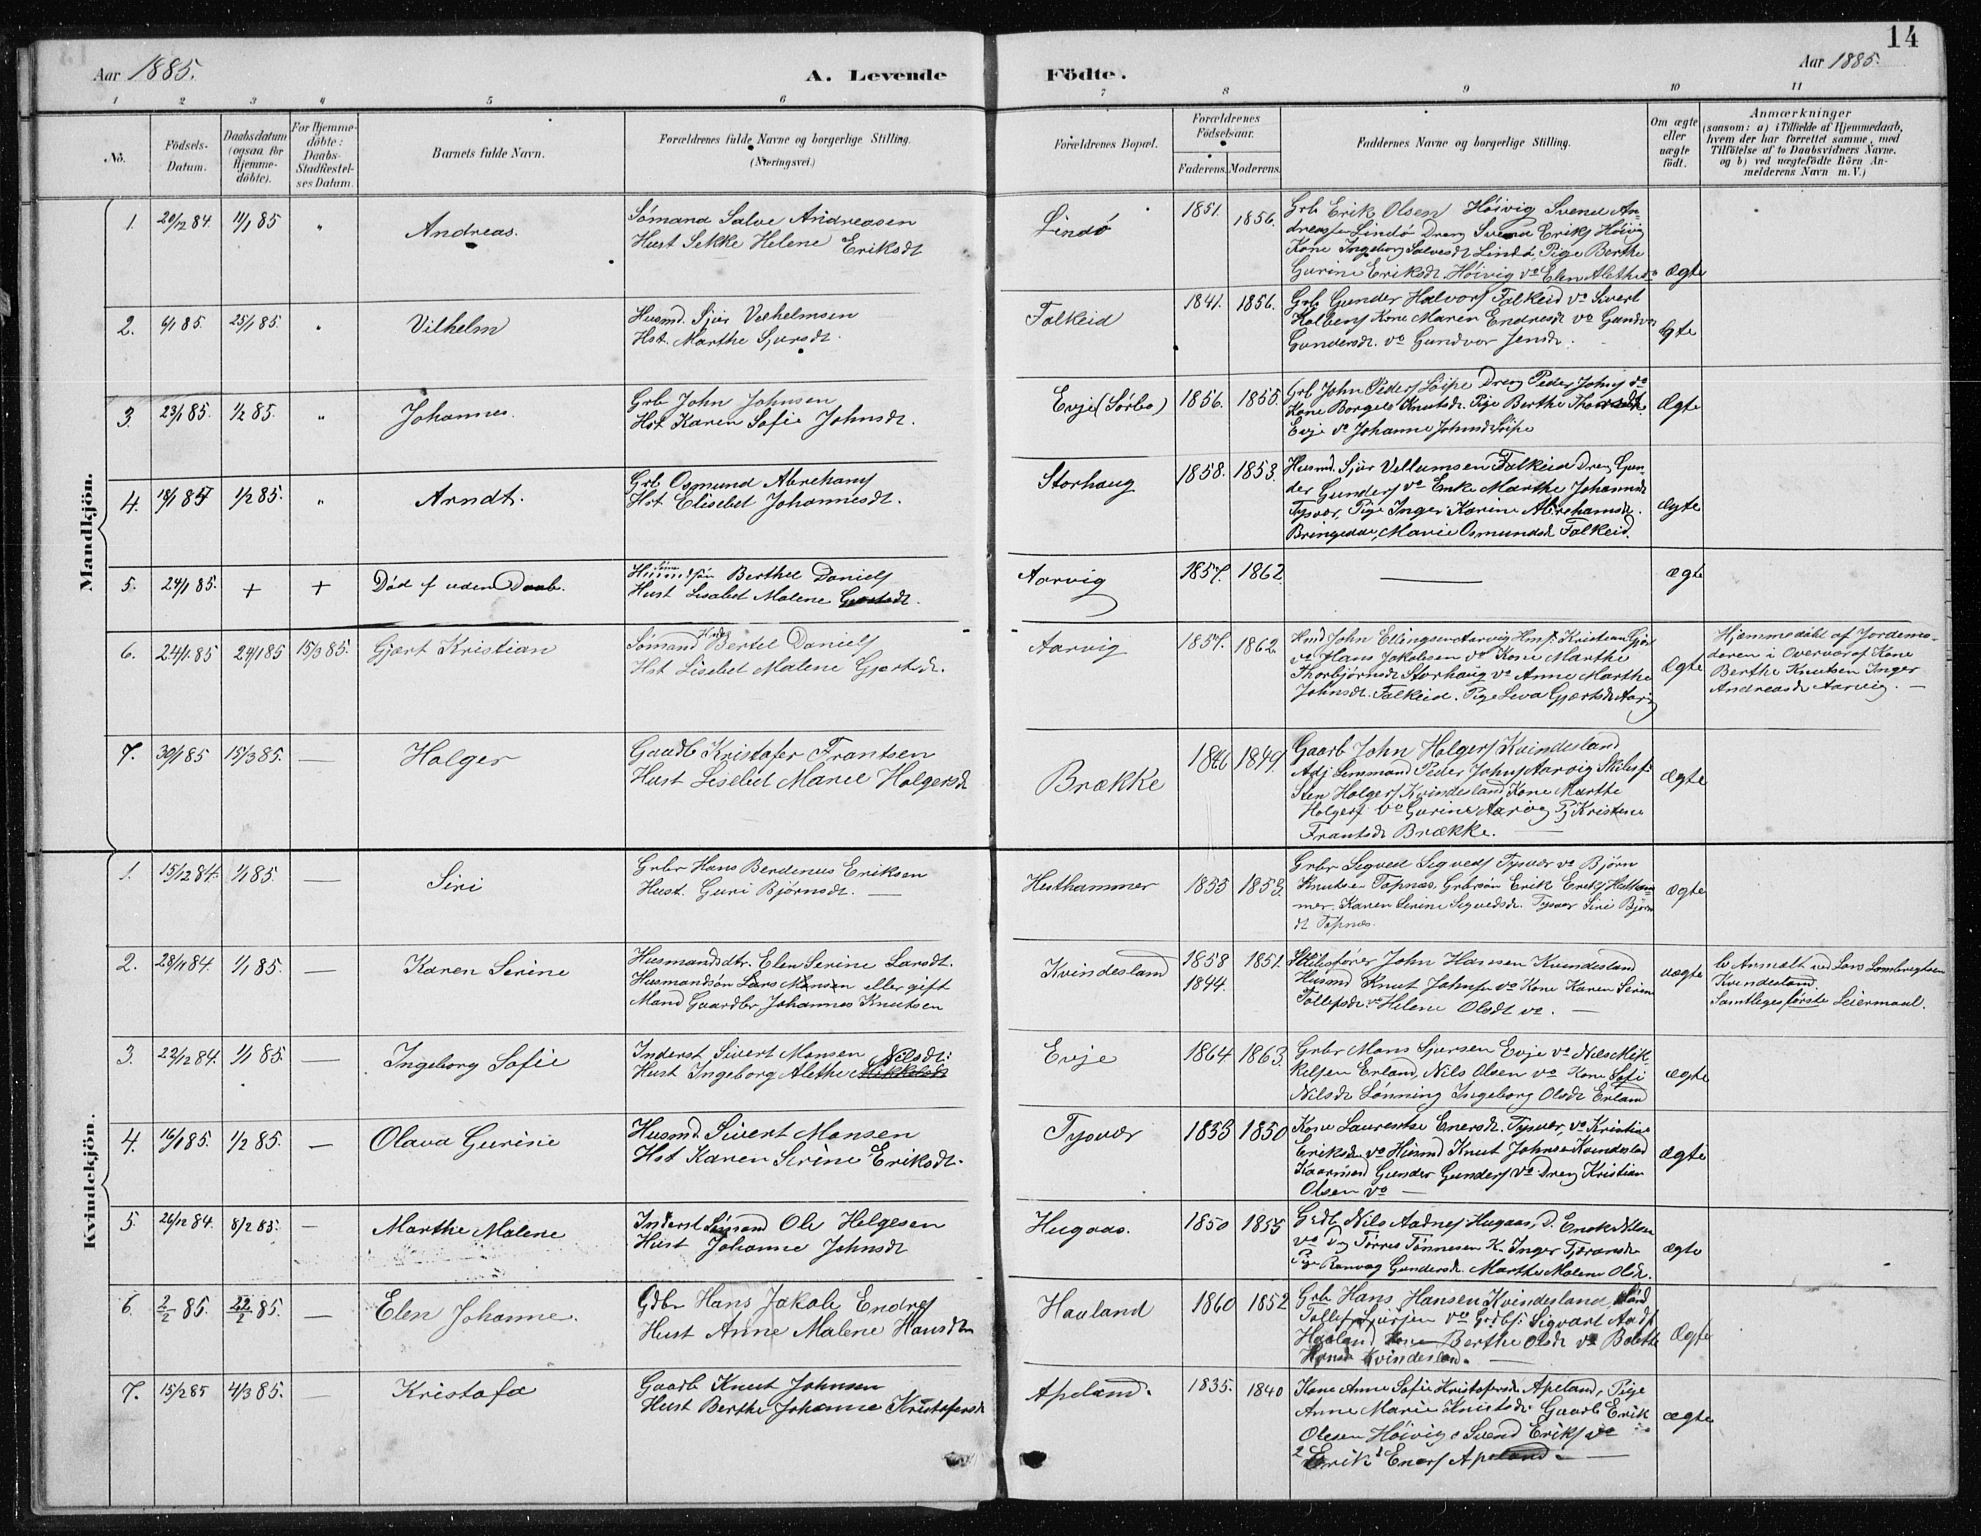 14
Aar 1885. A. Levende
Födte. Aar 1885.
1 2 3 4 5 6
7 8 9 10 11
No.
Födsels-
Datum.
Daabsdatum
(ogsaa for
Hjemme-
döbte).
For Hjemme-
döbte:
Daabs-
Stadfestel-
ses Datum.
Barnets fulde Navn.
Forældrenes fulde Navne og borgerlige Stilling.
(Næringsvei.)
Forældrenes Bopæl.
Forældrenes
Födselsaar.
Faderens. Moderens.
Faddernes Navne og borgerlige Stilling.
Om ægte
eller
uægte
födt.
Anmærkninger
(saasom: a) i Tilfælde af Hjemmedaab,
hvem der har forrettet samme, med
Tilföielse af to Daabsvidners Navne,
og b) ved uægtefödte Börn An-
melderens Navn m. V.)
Mandkjön.
1. 20/12 84. 11/1 85 " Andreas.
Sömand Salve Andreasen
Hust Sekke Helene Eriksdt
Lindö 1851. 1856.
Grb Erik Olsen Höivig Svend An-
dreasf Lindö Dreng Svend Eriks Höivig
Kone Ingeborg Salvesdt Lindö, Pige Berthe
Gurine Eriksdt. Höivig vo Elen Alethe
ægte
2. 6/1 85. 25/1 85. " Vilhelm
Husmd. Sjur Velhelmsen
Hst. Marthe Sjursdt.
Falkeid 1841. 1856.
Grb Gunder Halvors Falkeid vo Sivert
Kolbens Kone Maren Endresdt vo Gundvor
Gundersdt. vo Gundvor Jensdt.
Ægte
3. 23/1 85. 1/2 85. " Johannes.
Grb John Johnsen
Hst Karen Sofie Johnsdt.
Evje (Sörbö) 1856. 1855.
Grb John Peders Löipe Dreng Peder Johns do
Kone Borgele Knutsdt. Pige Berthe
Evje vo Johanne Johnsdt Löipe
Ægte
4. 18/1 85 1/2 85. " Arndt.
Grb Osmund Abrahams
Hst Elisebet Johannesdt.
Storhaug 1858. 1853.
Husmd. Sjur Vellumsen Falkeid Dreng Gun-
der Gunders vo Enke Marthe Johannsdt
Tysvær, Pige Inger Karine Abrahamsdt.
Bringedal, Marie Osmundsdt Falkeid.
ægte
5. 24/1 85. + + Död f uden Daab.
Husmdsön Berthel Daniels
Hust Lisabet Malene Gjertsdt.
Aarvig 1857. 1862. ægte
6. 24/1 85 24/1 85 15/3 85. Gjert Kristian
Sömand Bertel Daniels
Hst Lisebet Malene Gjertsdt.
Aarvig 1857. 1862
Hmd John Ellingsen Aarvig Hmf. Kristian Gjer
vo Hans Jakobsen vo Kone Marthe
Thorbjörnsdt Storhaug vo Anne Marthe
Johnsdt. Falkeid. Pige Leva Gjertsdt Aarvig
Ægte
Hjemmedöbt af Jordemo-
deren i Overvær af Kone
Berthe Knutsen Inger
Andreasdt Aarvig. —
7. 30/1 85 15/3 85. — Holger
Gaardb Kristofer Frantsen
Hust Lisebet Marie Holgersdt
Brække 1846 1849.
Gaarb John Holgers Kvindesland
Adj Sömmand Peder Johns Aarvig Skibsf.
Sten Holgers Kvindesland Kone Marthe
Holgersf. vo Gurine Aarvig Pg Kristene
Frantsdt Brække. —
Ægte
Kvindekjön.
1. 15/12 84. 1/1 85. — Siri
Grbr Hans Berdenus Eriksen
Hust. Guri Björnsdt. —
Hesthammer 1855 1853.
Grbr Sigved Sigveds Tysvær vo Björn
Knutsen Topnæs, Grbrsön Erik Eriks Hestham-
mer, Karen Serine Sigvedsdt. Tysvær Siri Björn
dt Topnæs.
Ægte
2. 28/11 84. 1/1 85. — Karen Serine
Husmandsdtr. Elen Serine Larsdt.
Husmandsön Lars Monsen eller gift
Mand Gaardbr Johannes Knutsen
Kvindesland 1858 1851.
1844.
Skibsförer John Hansen Kvindesland
Husmd Knut Johns vo Kone Karen Serine
Tollefsdt. vo Helene Olsdt vo. —
uægte
b Anmælt ved Lars Lambregtsen
Kvindesland.
Samtliges förste Leiermaal.
3. 22/12 84. 1/1 85. — Ingeborg Sofie
Inderst Sivert Monsen
Hust Ingeborg Alethe Nilsdt. Mikkelsdt
Evje 1864 1863.
Grbr Mons Sjursen Evje vo Nils Mik
kelsen Erland, Nils Olsen vo Kone Sofi
Nilsdt Lönning Ingeborg Olsdt Erland
Ægte
4. 16/1 85. 1/2 85. — Olava Gurine
Husmd. Sivert Monsen
Hst Karen Serine Eriksdt.
Tysvær 1833 1850
Kone Lauresthe Enersdt. Tysvær, vo Kristine
Eriksdtr vo Husmd Knut Johnsen Kvindesland
Kaarmd Gunder Gunders vo Dreng Kristian
Olsen vo —
Ægte
5. 26/12 84. 8/2 85. — Marthe Malene
Inderst Sömand Ole Helgesen
Hust Johanne Johnsdt
Hegaas. 1850 1855
Grdb. Nils Aadnes Hugaas, D.
vo Dg Törres Tönnesen K. Inger Tjeransdt
Pige Ranvag Gundersdt. Marthe Malene Olsdt.
Ægte
6. 2/2 85. 22/2 85. — Elen Johanne.
Gdbr Hans Jakob Endres
Hust Anne Malene Hansdtr
Havland 1860 1852
Grb Hans Hansen Kvindesland,
Tollef Sjursen vo Grdbs. Sigvart Aads
Havland Kone Berthe Olsdt vo Bolette
Hansdt Kvindesland. —
Ægte
7. 15/2 85 4/3 85. — Kristofa
Gaarb Knut Johnsen
Hust Berthe Johanne Kristofersdt
Apeland. 1835. 1840
Kone Anne Sofie Kristofersdt Apeland, Pige
Anne Marie Knutsdt. Gaarb Erik
Olesen Höivig, Svend Eriks vo
Erik Eners Apeland. —
Ægte